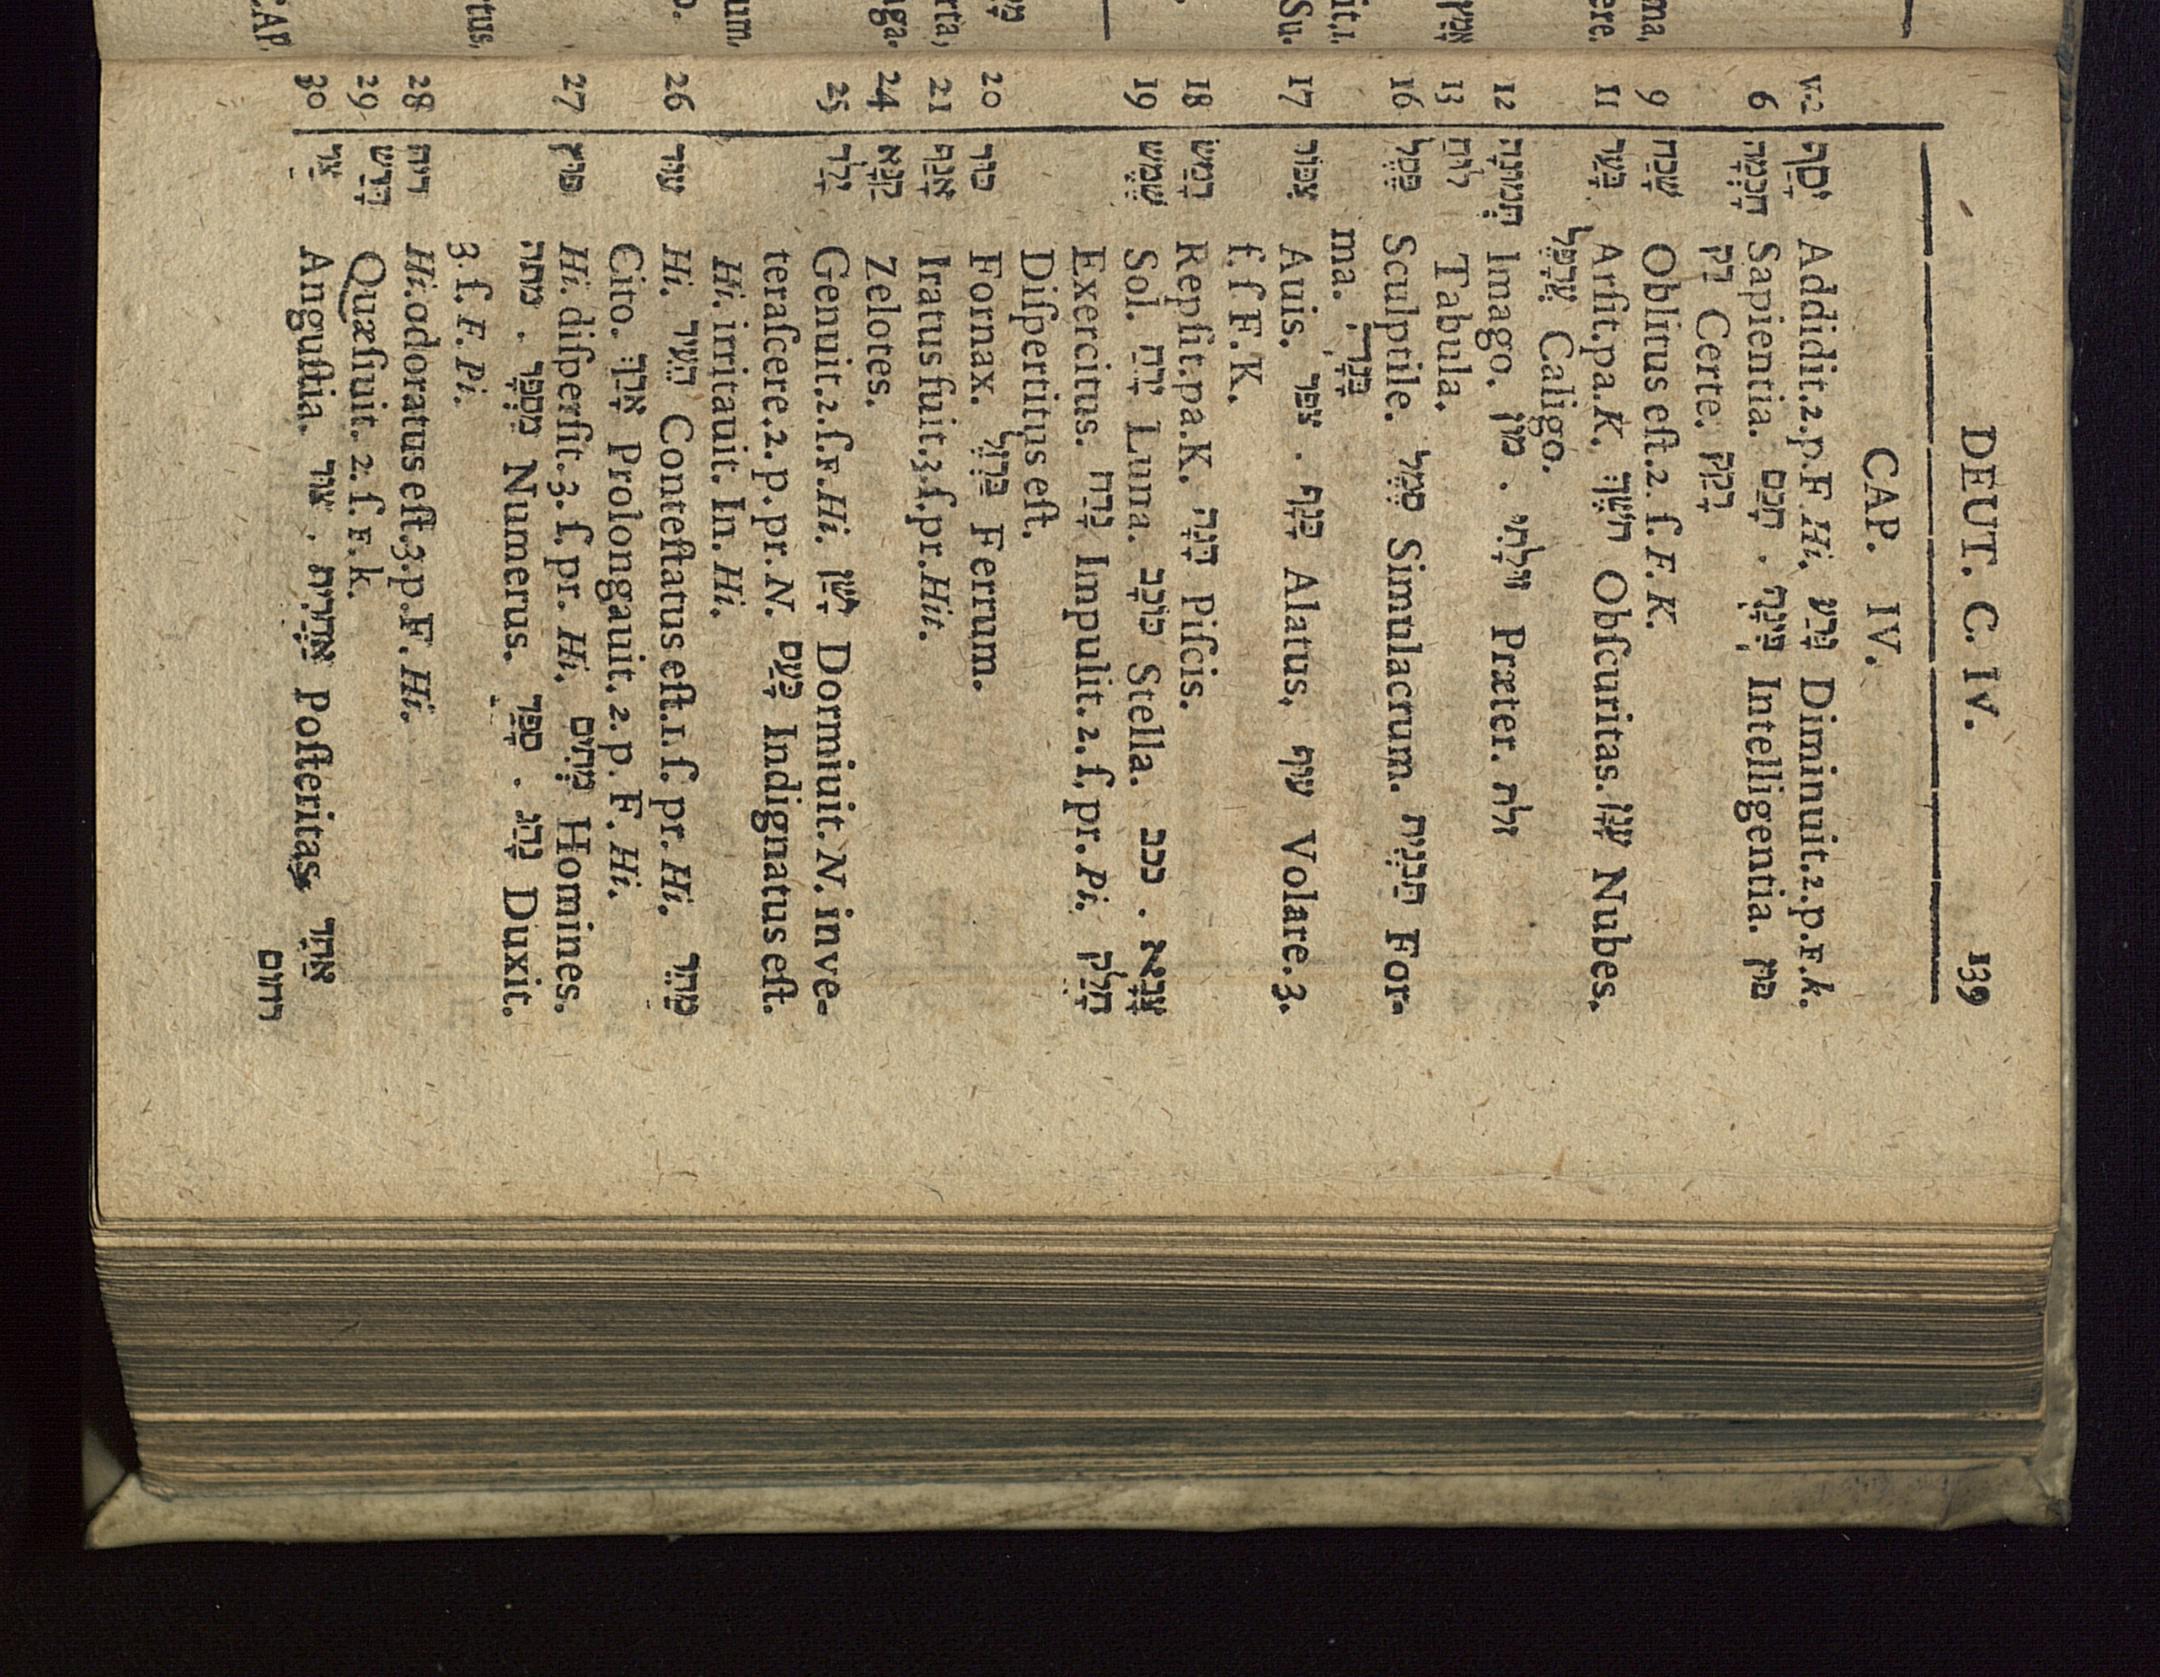 DEUT. C. IV. 139
CAP. IV.
v.2 יָסַף Addidit.2.p.F Hi. גָּרַע Diminuit.2.p.F.k.
6 חָכְמָה Sapientia. חָכַם . בִּינָה Intelligentia. בין
רַק Certe. רָקַק
9 שָׁכַח Oblitus eſt.2. ſ.F.K.
11 בָּעַר Arſit.pa.K. חֹשֶׁךְ Obſcuritas. עָנָן Nubes.
עֲרָפֶל Caligo.
12 תְּמוּנָה Imago. מון . זוּלָתִי Præter. זלת
13 לוּחַ Tabula.
16 פֶּסֶל Sculptile. סֶמֶל Simulacrum. תַּבְנִית For-
ma. בָּנָה
17 צִפּוֹר Auis. צפר . כָּנָף Alatus. עוּף Volare.3.
f. ſ F. K.
18 רָמַשׂ Repſit.pa.K. דָּגָה Piſcis.
19 שֶׁמֶשׁ Sol. יָרֵחַ Luna. כּוֹכָב Stella. ככב . צָבָא
Exercitus. נָדַח Impulit. 2. ſ. pr. Pi. חָלַק
Diſpertitus eſt.
20 כּוּר Fornax. בַּרְזֶל Ferrum.
21 אָנַף Iratus fuit.3.ſ.pr.Hit.
24 קַנָּא Zelotes.
25 יָלַד Genuit.2.ſ.F.Hi. יָשֵׁן Dormiuit. N. inve-
teraſcere.2.p. pr. N. כָּעַס Indignatus eſt.
Hi. irritauit. In. Hi.
26 עוּד Hi. הֵעִיד Conteſtatus eſt.1. ſ. pr. Hi. מַהֵר
Cito. אָרַךְ Prolongauit. 2. p. F. Hi.
27 פוּץ Hi. diſperſit. 3. ſ. pr. Hi. מְתִים Homines.
מתה . מִסְפָּר Numerus. סָפַר . נָהַג Duxit.
3. ſ. F. Pi.
28 ריח Hi. odoratus eſt.3.p.F. Hi.
29 דָּרַשׁ Quæſiuit. 2. ſ. F. k.
30 צַר Anguſtia. צרר . אַחֲרִית Poſteritas. אַחַר